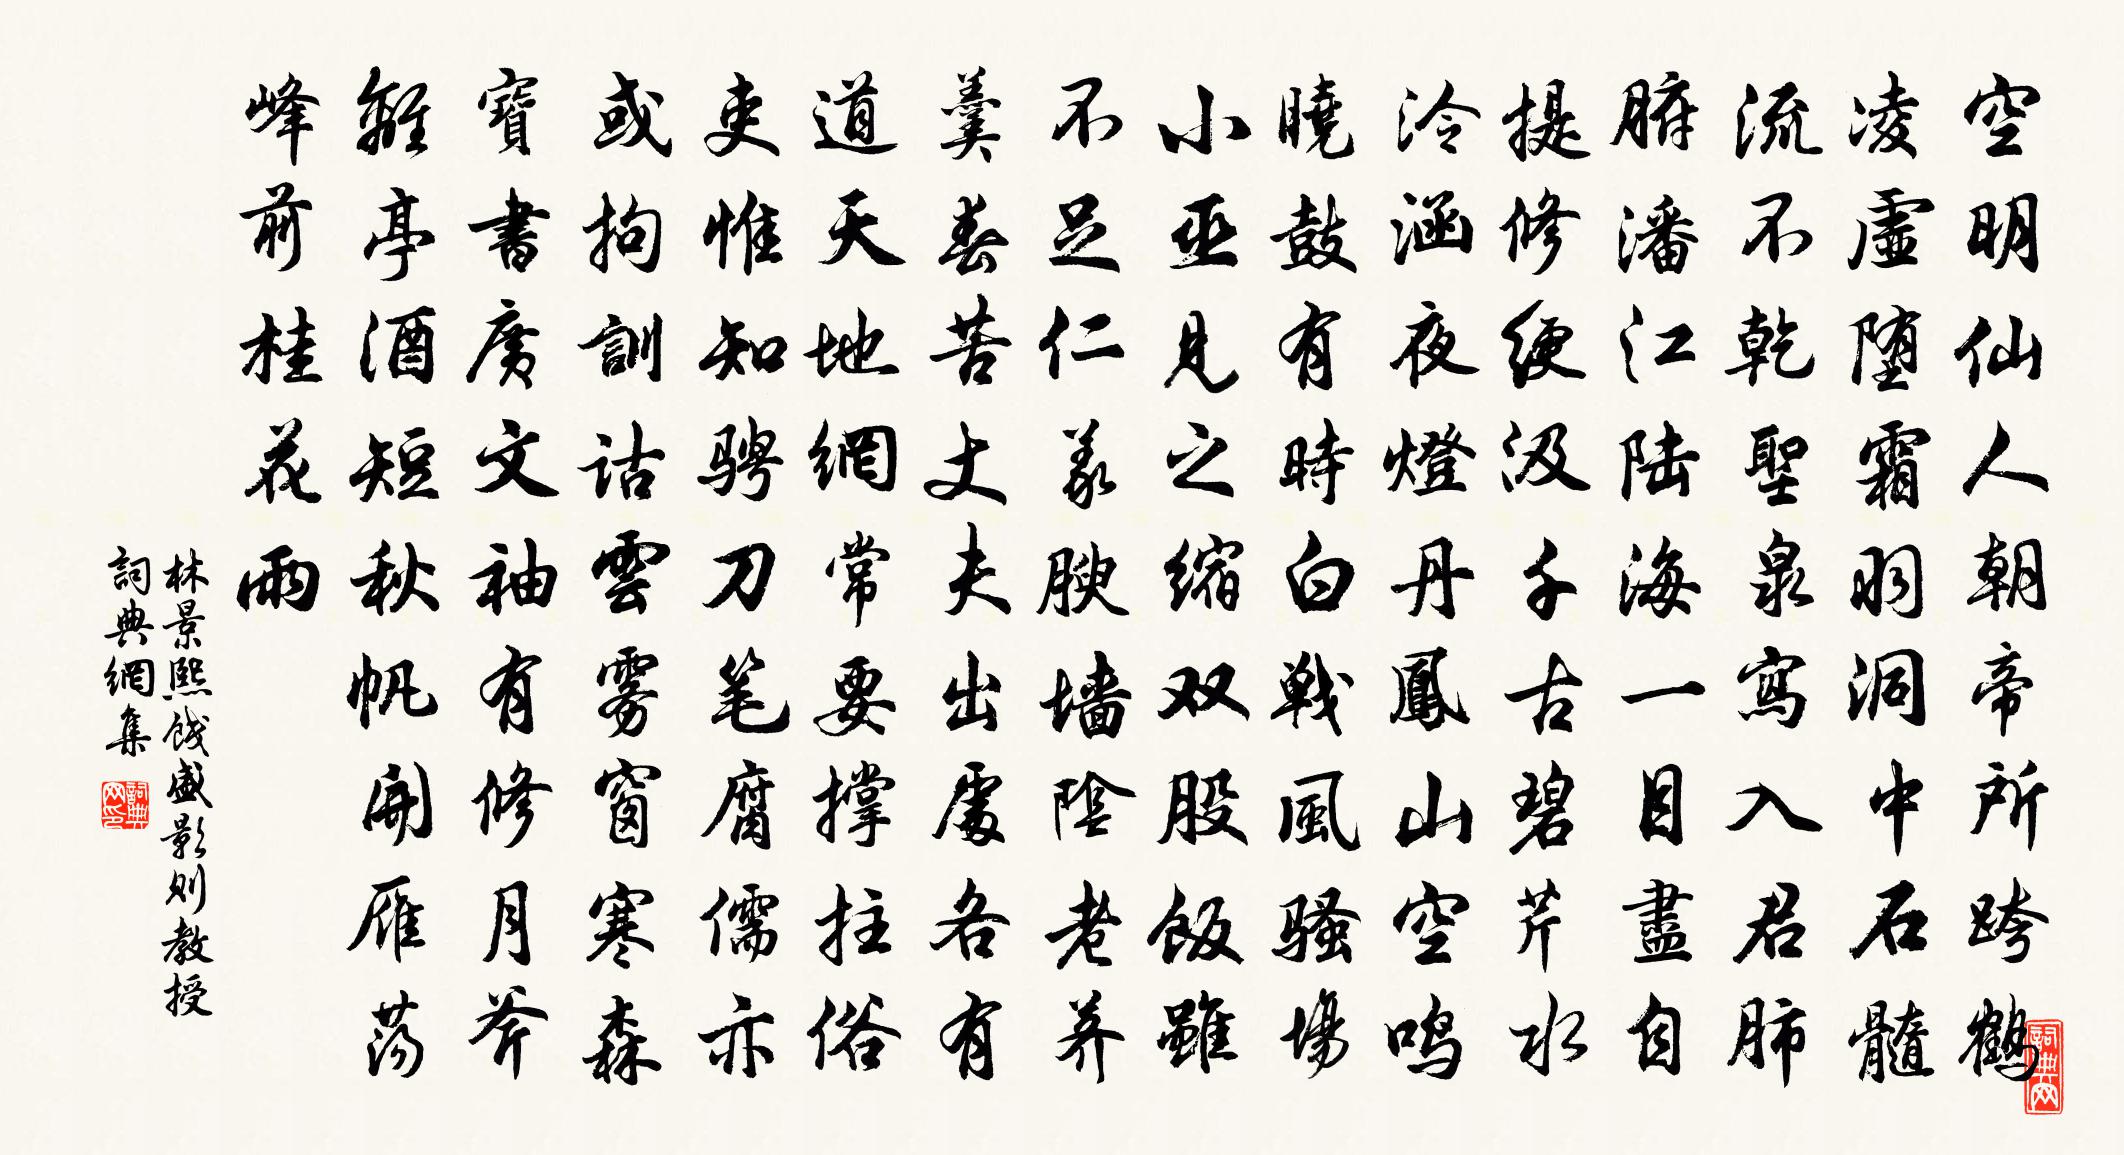 空明仙人朝帝所跨鶴
凌虛堕霜羽洞中石髓
流不乾聖泉寫入君肺
腑潘江陆海一目盡自
提修綆汲千古碧芹水
泠涵夜燈丹鳳山空鸣
曉鼓有時白戦風騷場
小巫見之縮双股飯雖
不足仁義腴墙陰老荠
羹春苦丈夫出處各有
道天地網常要撑拄俗
吏惟知騁刀笔腐儒亦
或拘訓诂雲雾窗寒森
寶書廣文袖有修月斧
離亭酒短秋帆開雁荡
峰前桂花雨
林景熙餞盛影则教授
詞典網集
詞典网印
詞典网